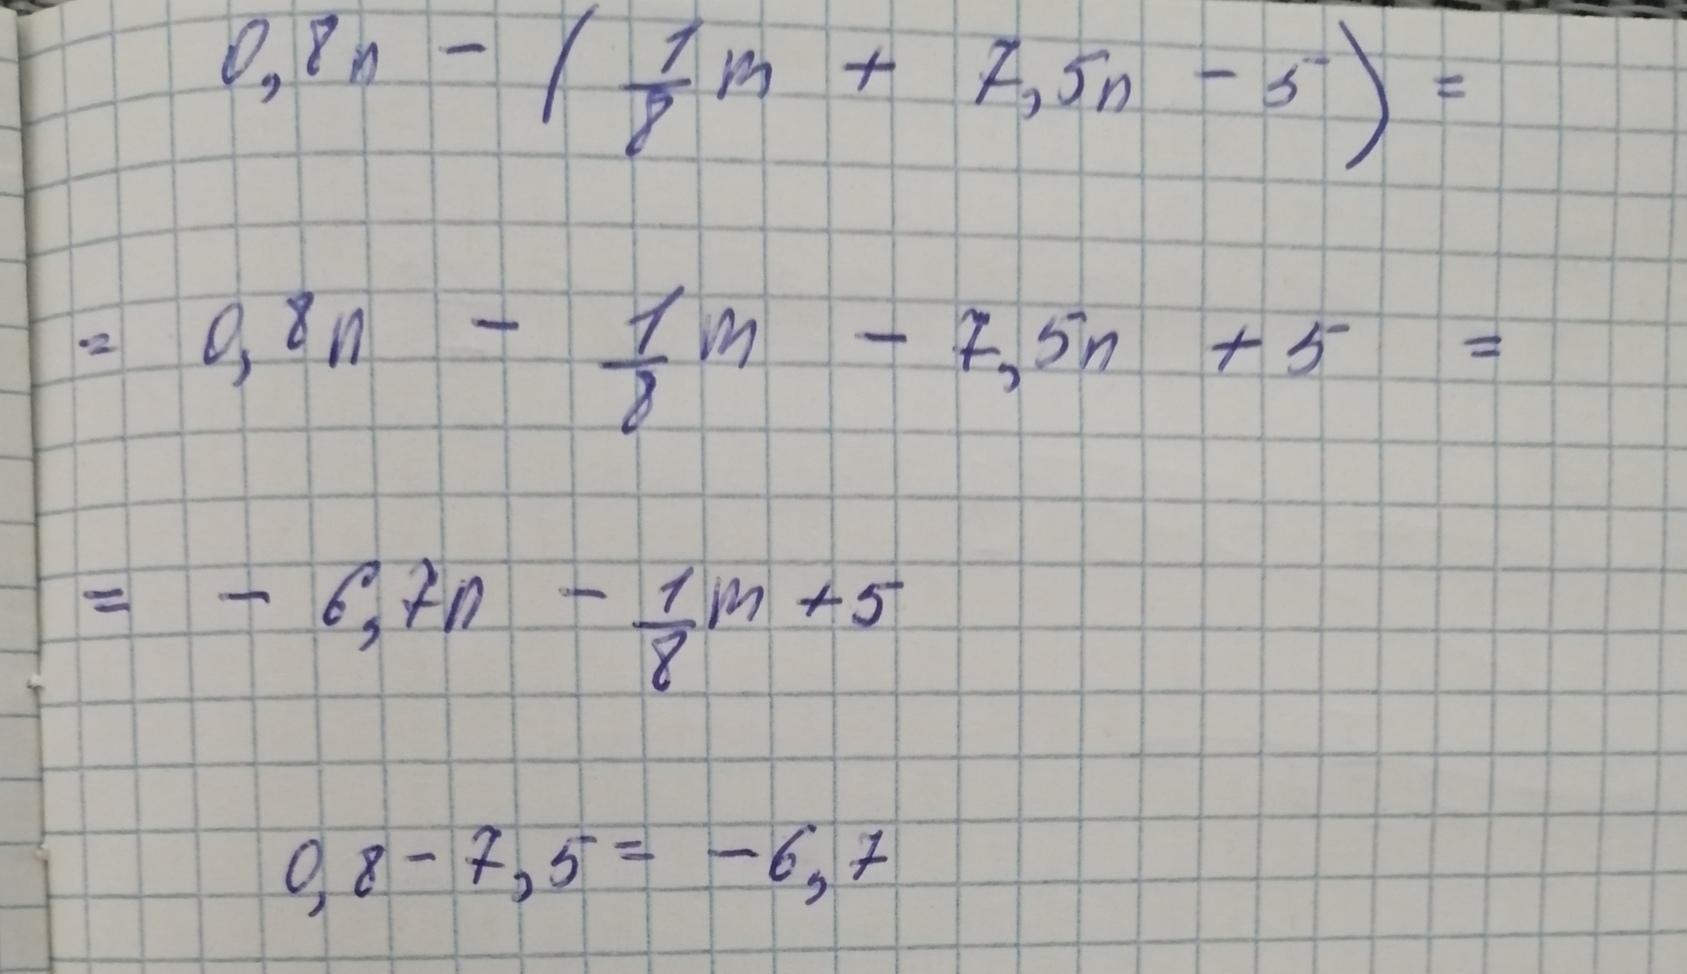 0,8n - (1/8 m + 7,5n - 5) =
= 0,8n - 1/8 m - 7,5n + 5 =
= - 6,7n - 1/8 m + 5
0,8 - 7,5 = - 6,7